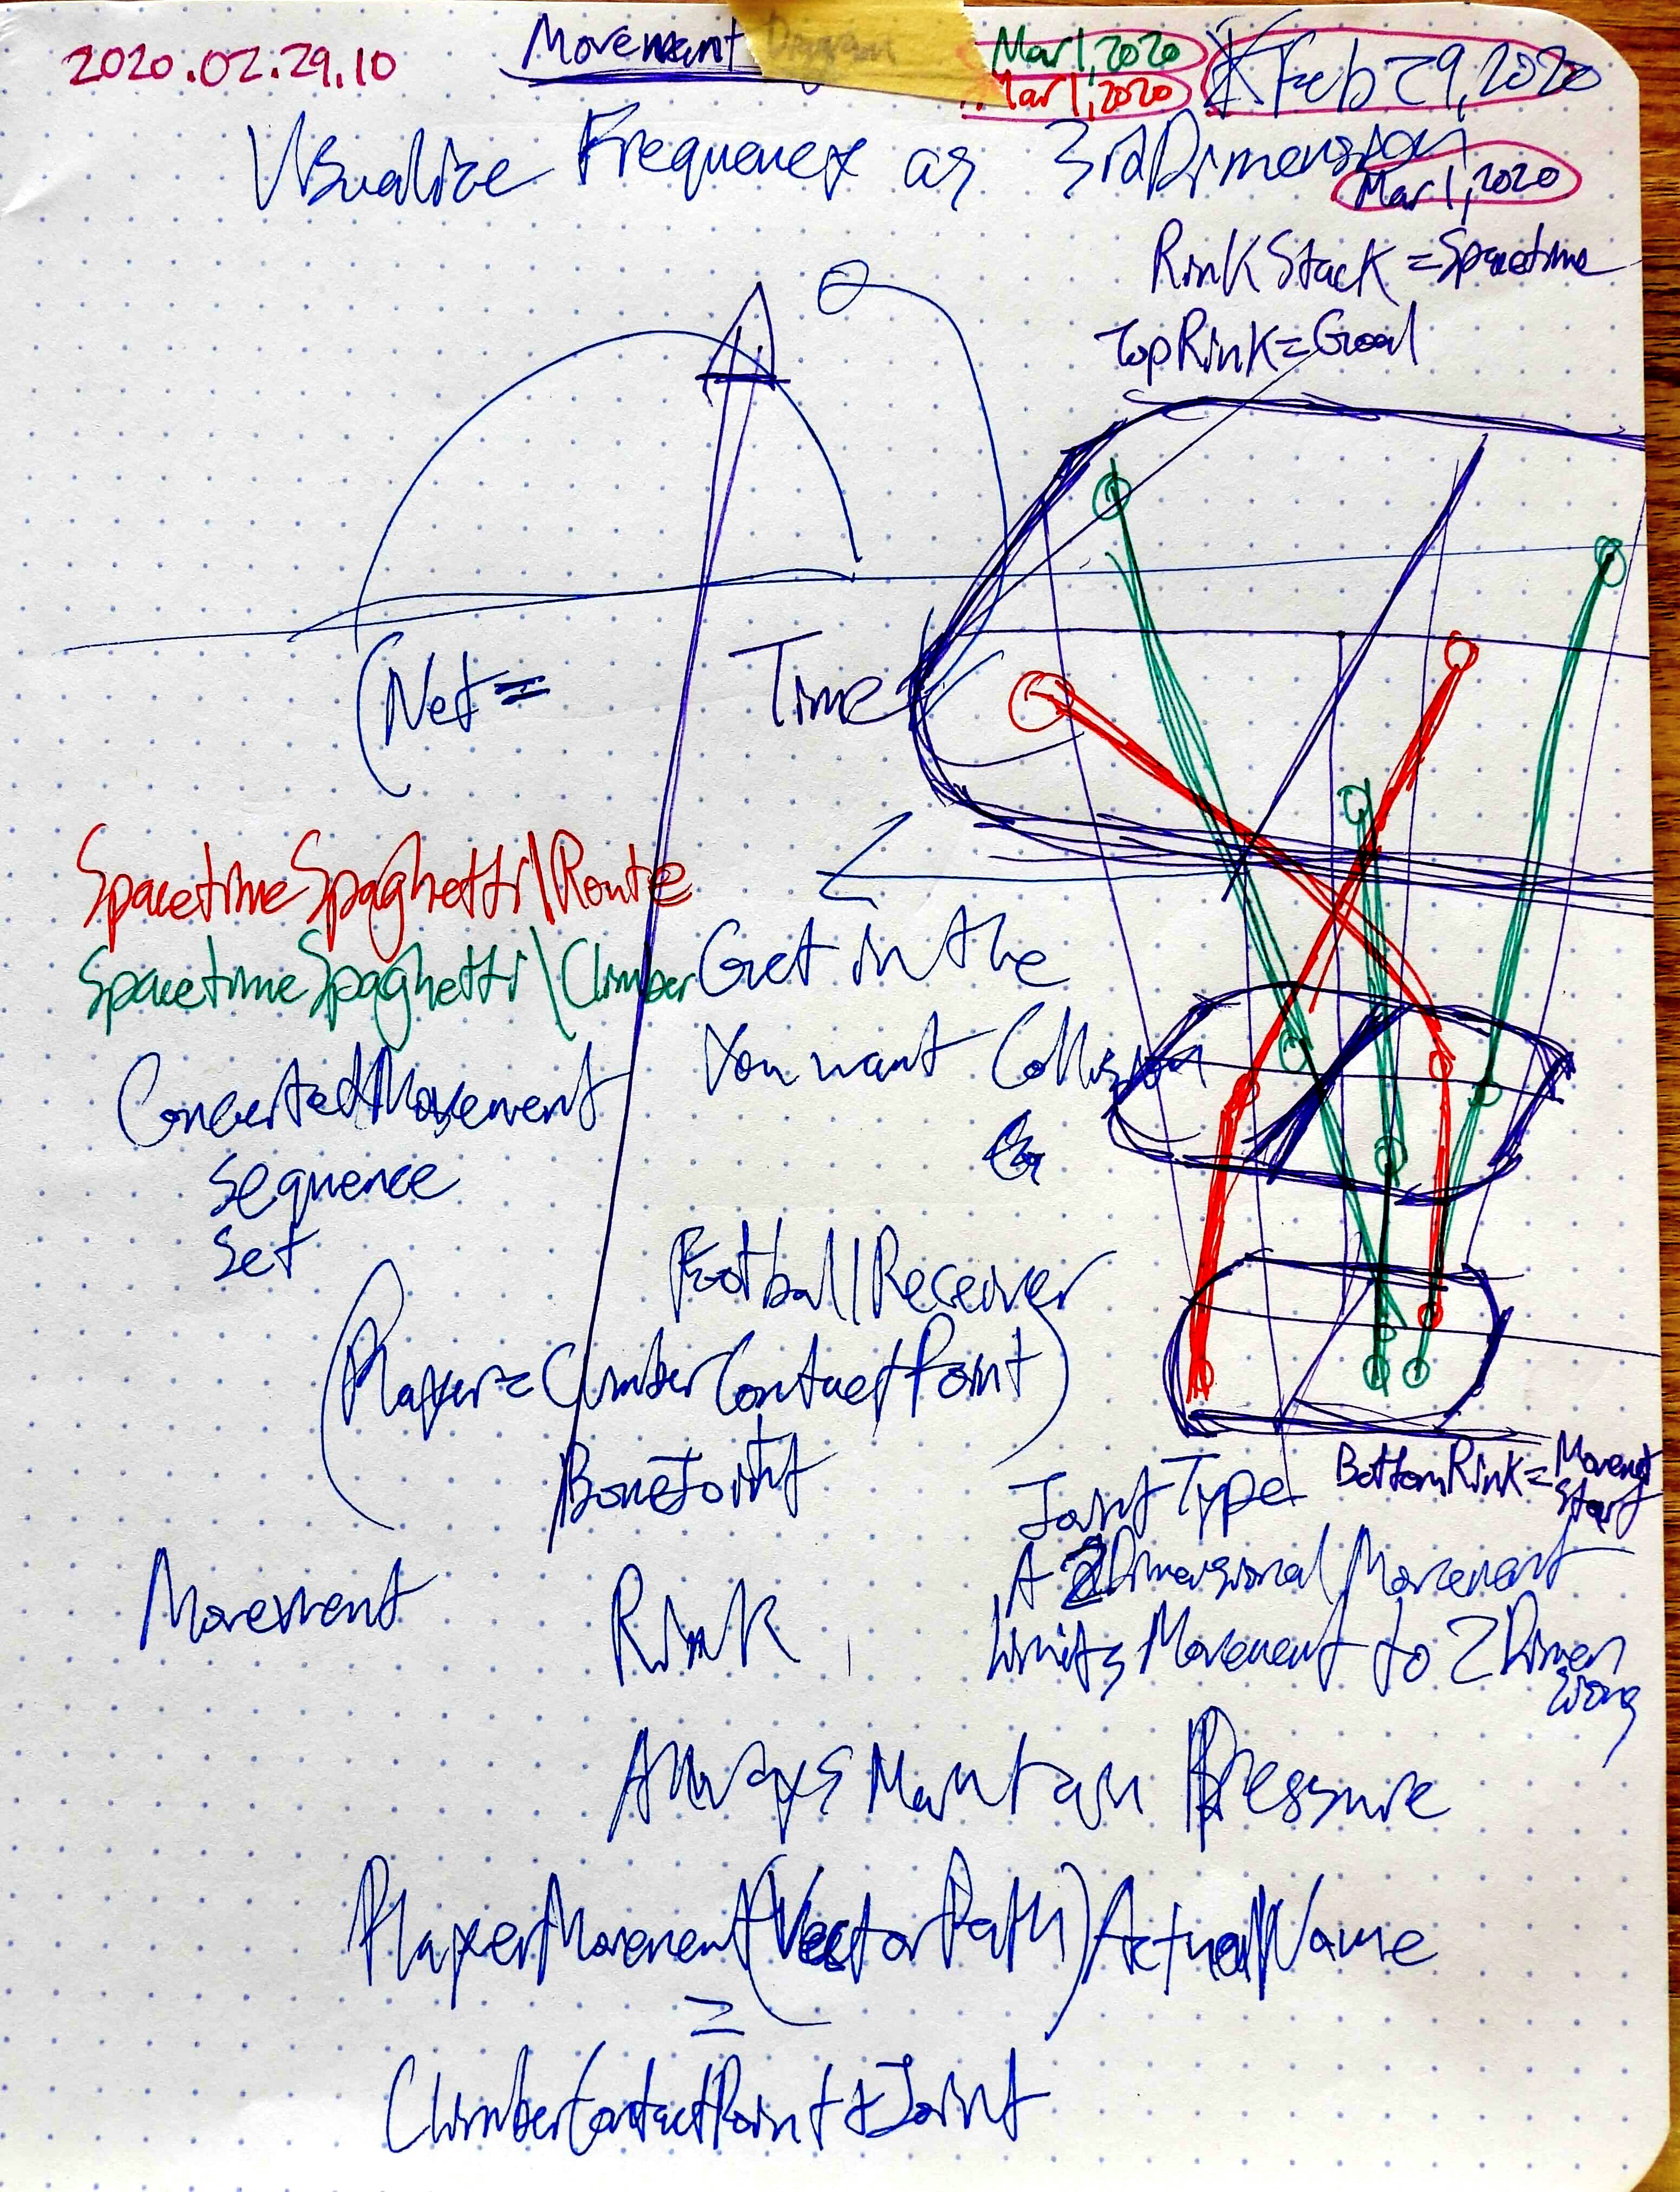 2020.02.29.10
Movement Diagram
Mar 1, 2020
Mar 1, 2020
Feb 29, 2020
Visualize Frequency as 3rdDimension
Mar 1, 2020
RinkStack = Spacetime
TopRink = Goal
(Net =
Time
SpacetimeSpaghetti\Route
SpacetimeSpaghetti\Climber
Get in the
You want Collision
ConcertedMovement
Sequence
Set
Football/Receiver
(Player = ClimberContactPoint)
BoneJoint
BottomRink = Movement Start
JointType
A 2DimensionalMovement
limits Movement to 2Dimensions
Movement
Rink
Always Maintain Pressure
PlayerMovement(VectorPath)ActualName
=
ClimberContactPoint & Joint